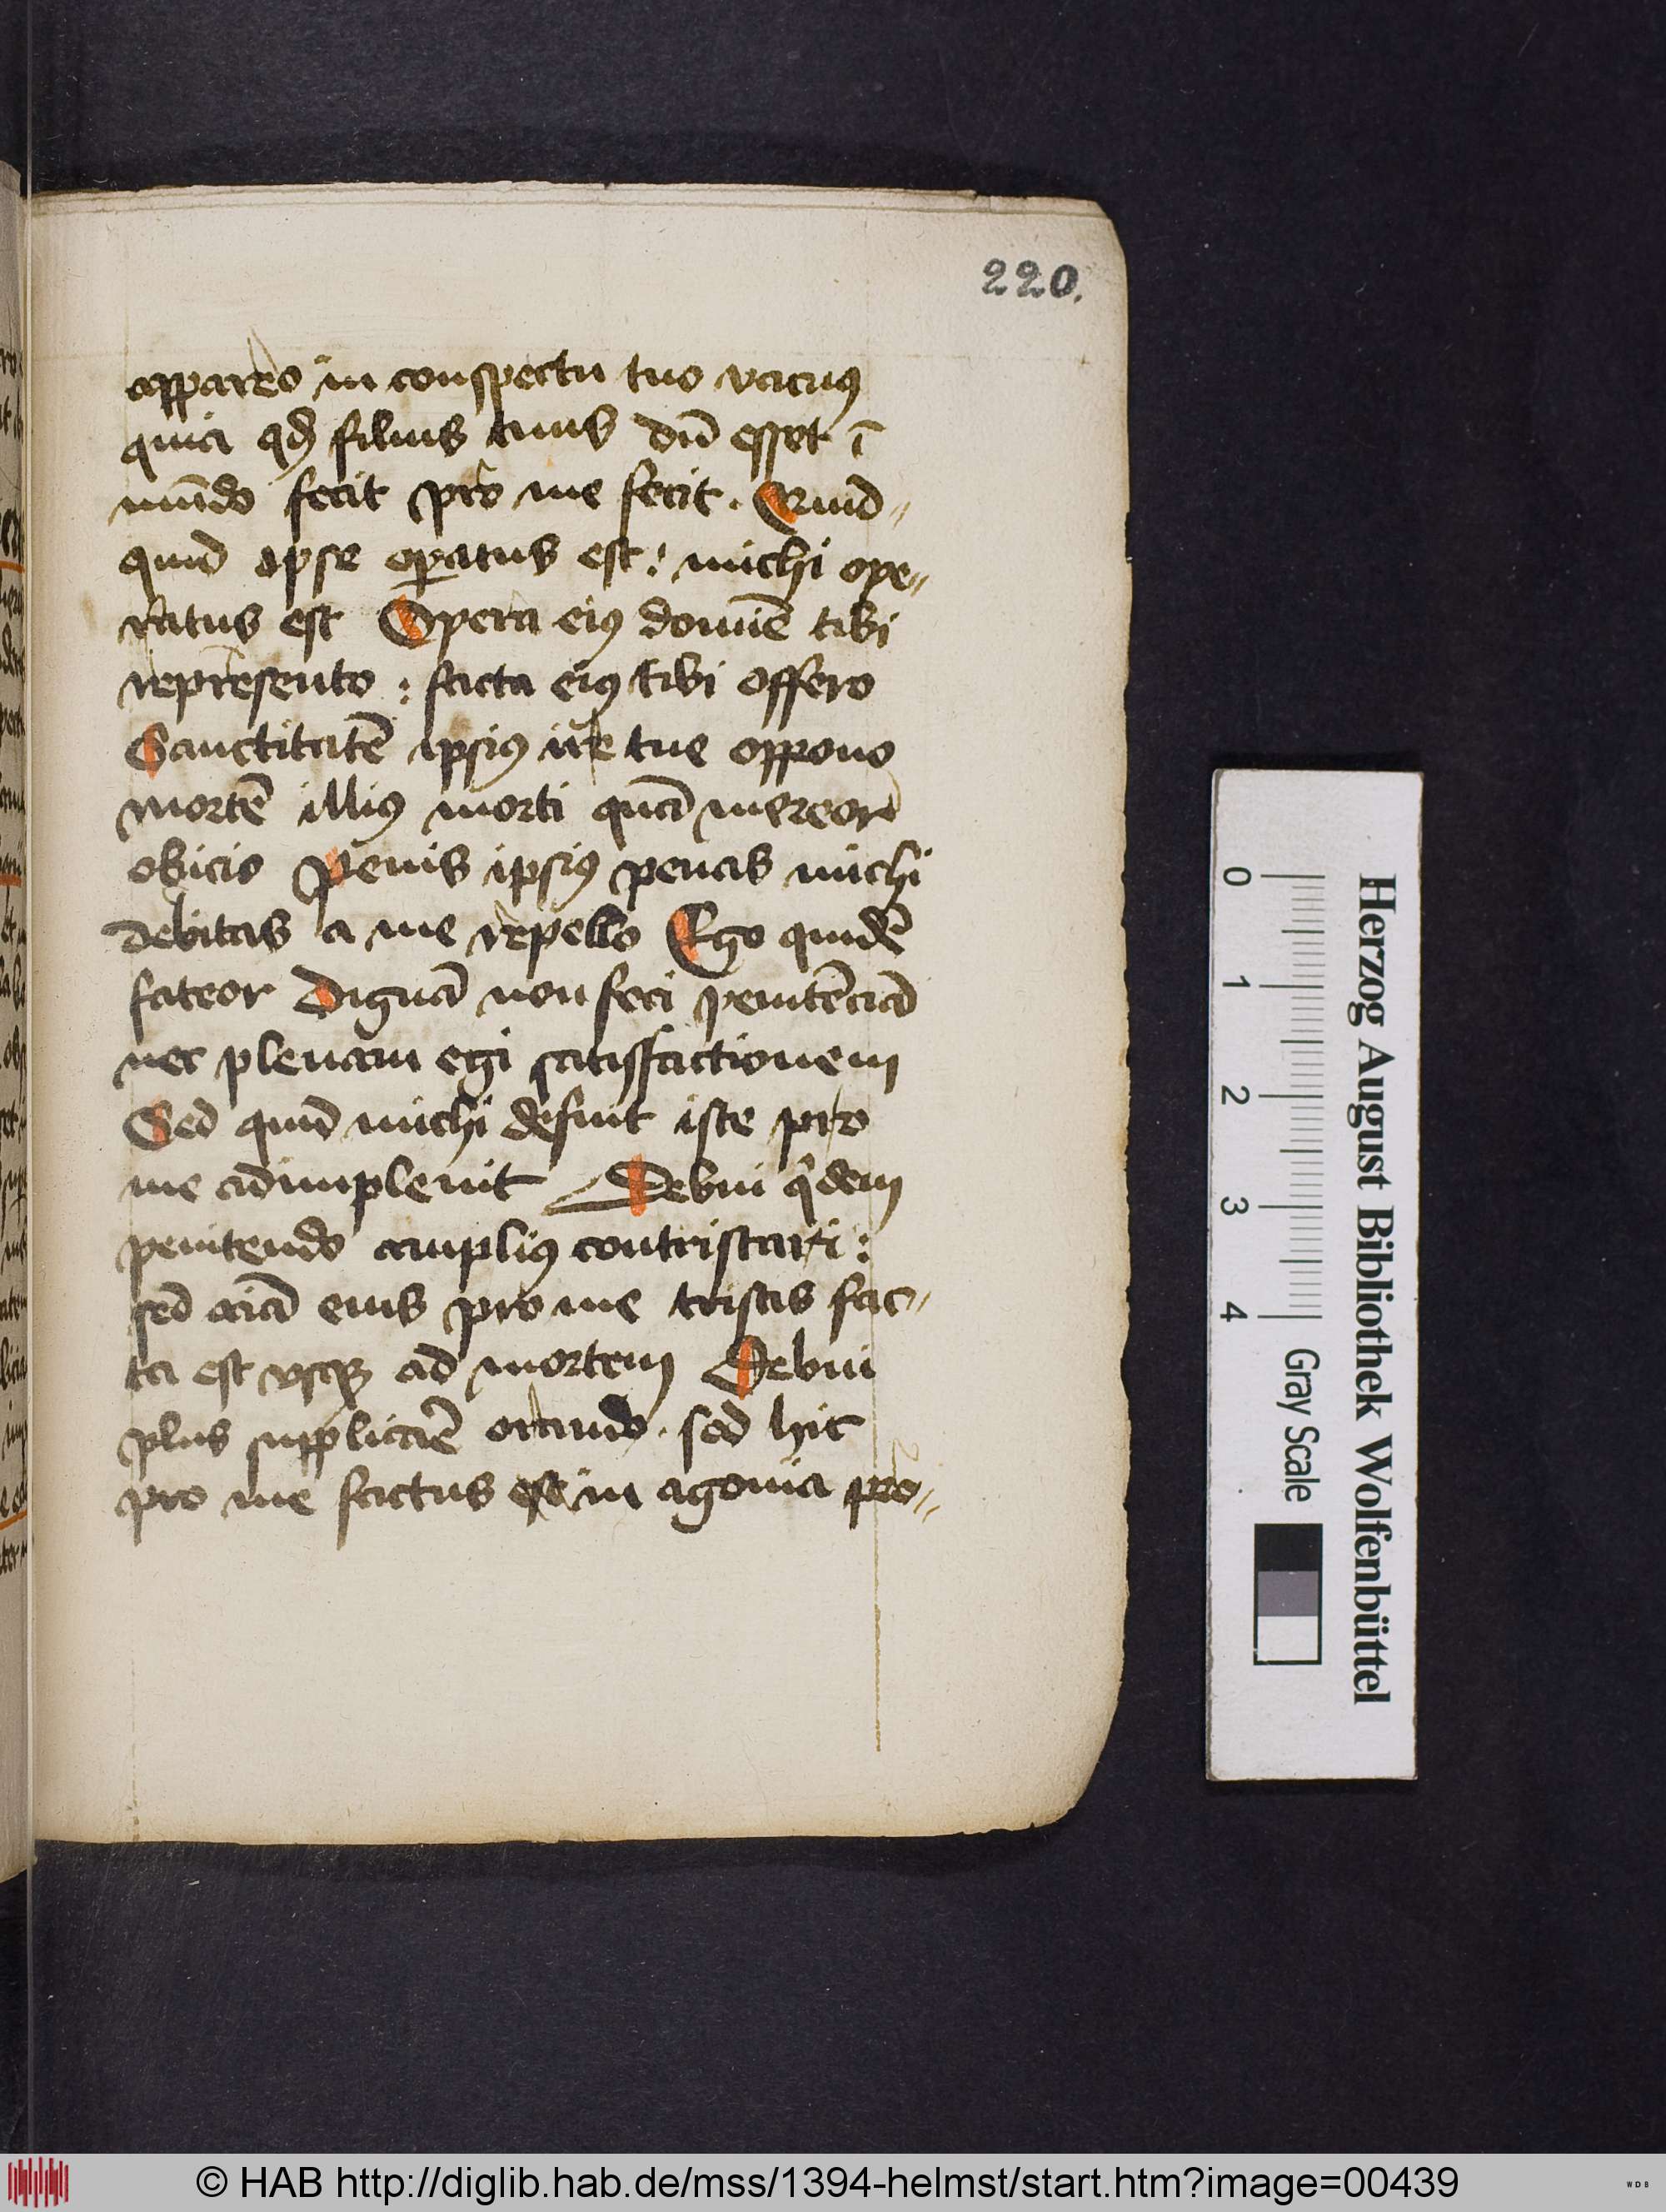 220.
appareo in conspectu tuo vacuꝰ
quia qd̄ filius tuus dū esset ī
mūdo fecit pro me fecit. Quid„
quid ipse oꝑatus est: michi ope„
ratus est Opera eiꝰ domiē tibi
represento: facta eiꝰ tibi offero
Sanctitatē ipsiꝰ ire tue oppono
mortē illiꝰ morti quā mereor
obicio Penis ipsiꝰ penas michi
debitas a me repello Ego quidē
fateor dignā non feci penitēciā
nec plenam egi satisfactionem
Sed quid michi defuit iste pro
me adimplevit Debui qͥdem
penitendo ampliꝰ contristari:
sed aīa eius pro me tristis fac„
ta est vsqꝫ ad mortem Debui
plus supplicāē orando. sed hic
pro me factus est in agonia pro„
Herzog August Bibliothek Wolfenbüttel
0 1 2 3 4 Gray Scale
© HAB http://diglib.hab.de/mss/1394-helmst/start.htm?image=00439
WDB